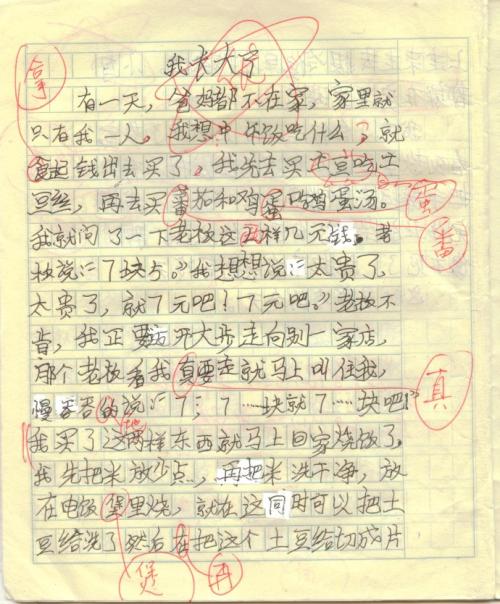 我长大了
有一天，爸妈都不在家，家里就
只有我一人，我想中午饭吃什么？就
拿起钱出去买了，我先去买土豆吃土
豆丝，再去买番茄和鸡蛋吃鸡蛋汤。
我就问了一下老板这两样几元钱。老
板说：“7块5。”我想想说：“太贵了，
太贵了，就7元吧！7元吧。”老板不
肯，我正要迈开大步走向别一家店，
那个老板看我真要走就马上叫住我，
慢吞吞的说：“7，7……块就7……块吧！”
我买了这两样东西就马上回家烧饭了，
我先把米放少点，再把米洗干净，放
在电饭煲里烧，就在这同时可以把土
豆给洗了然后在把这个土豆给切成片
拿
蛋
番
真
地
煲
再